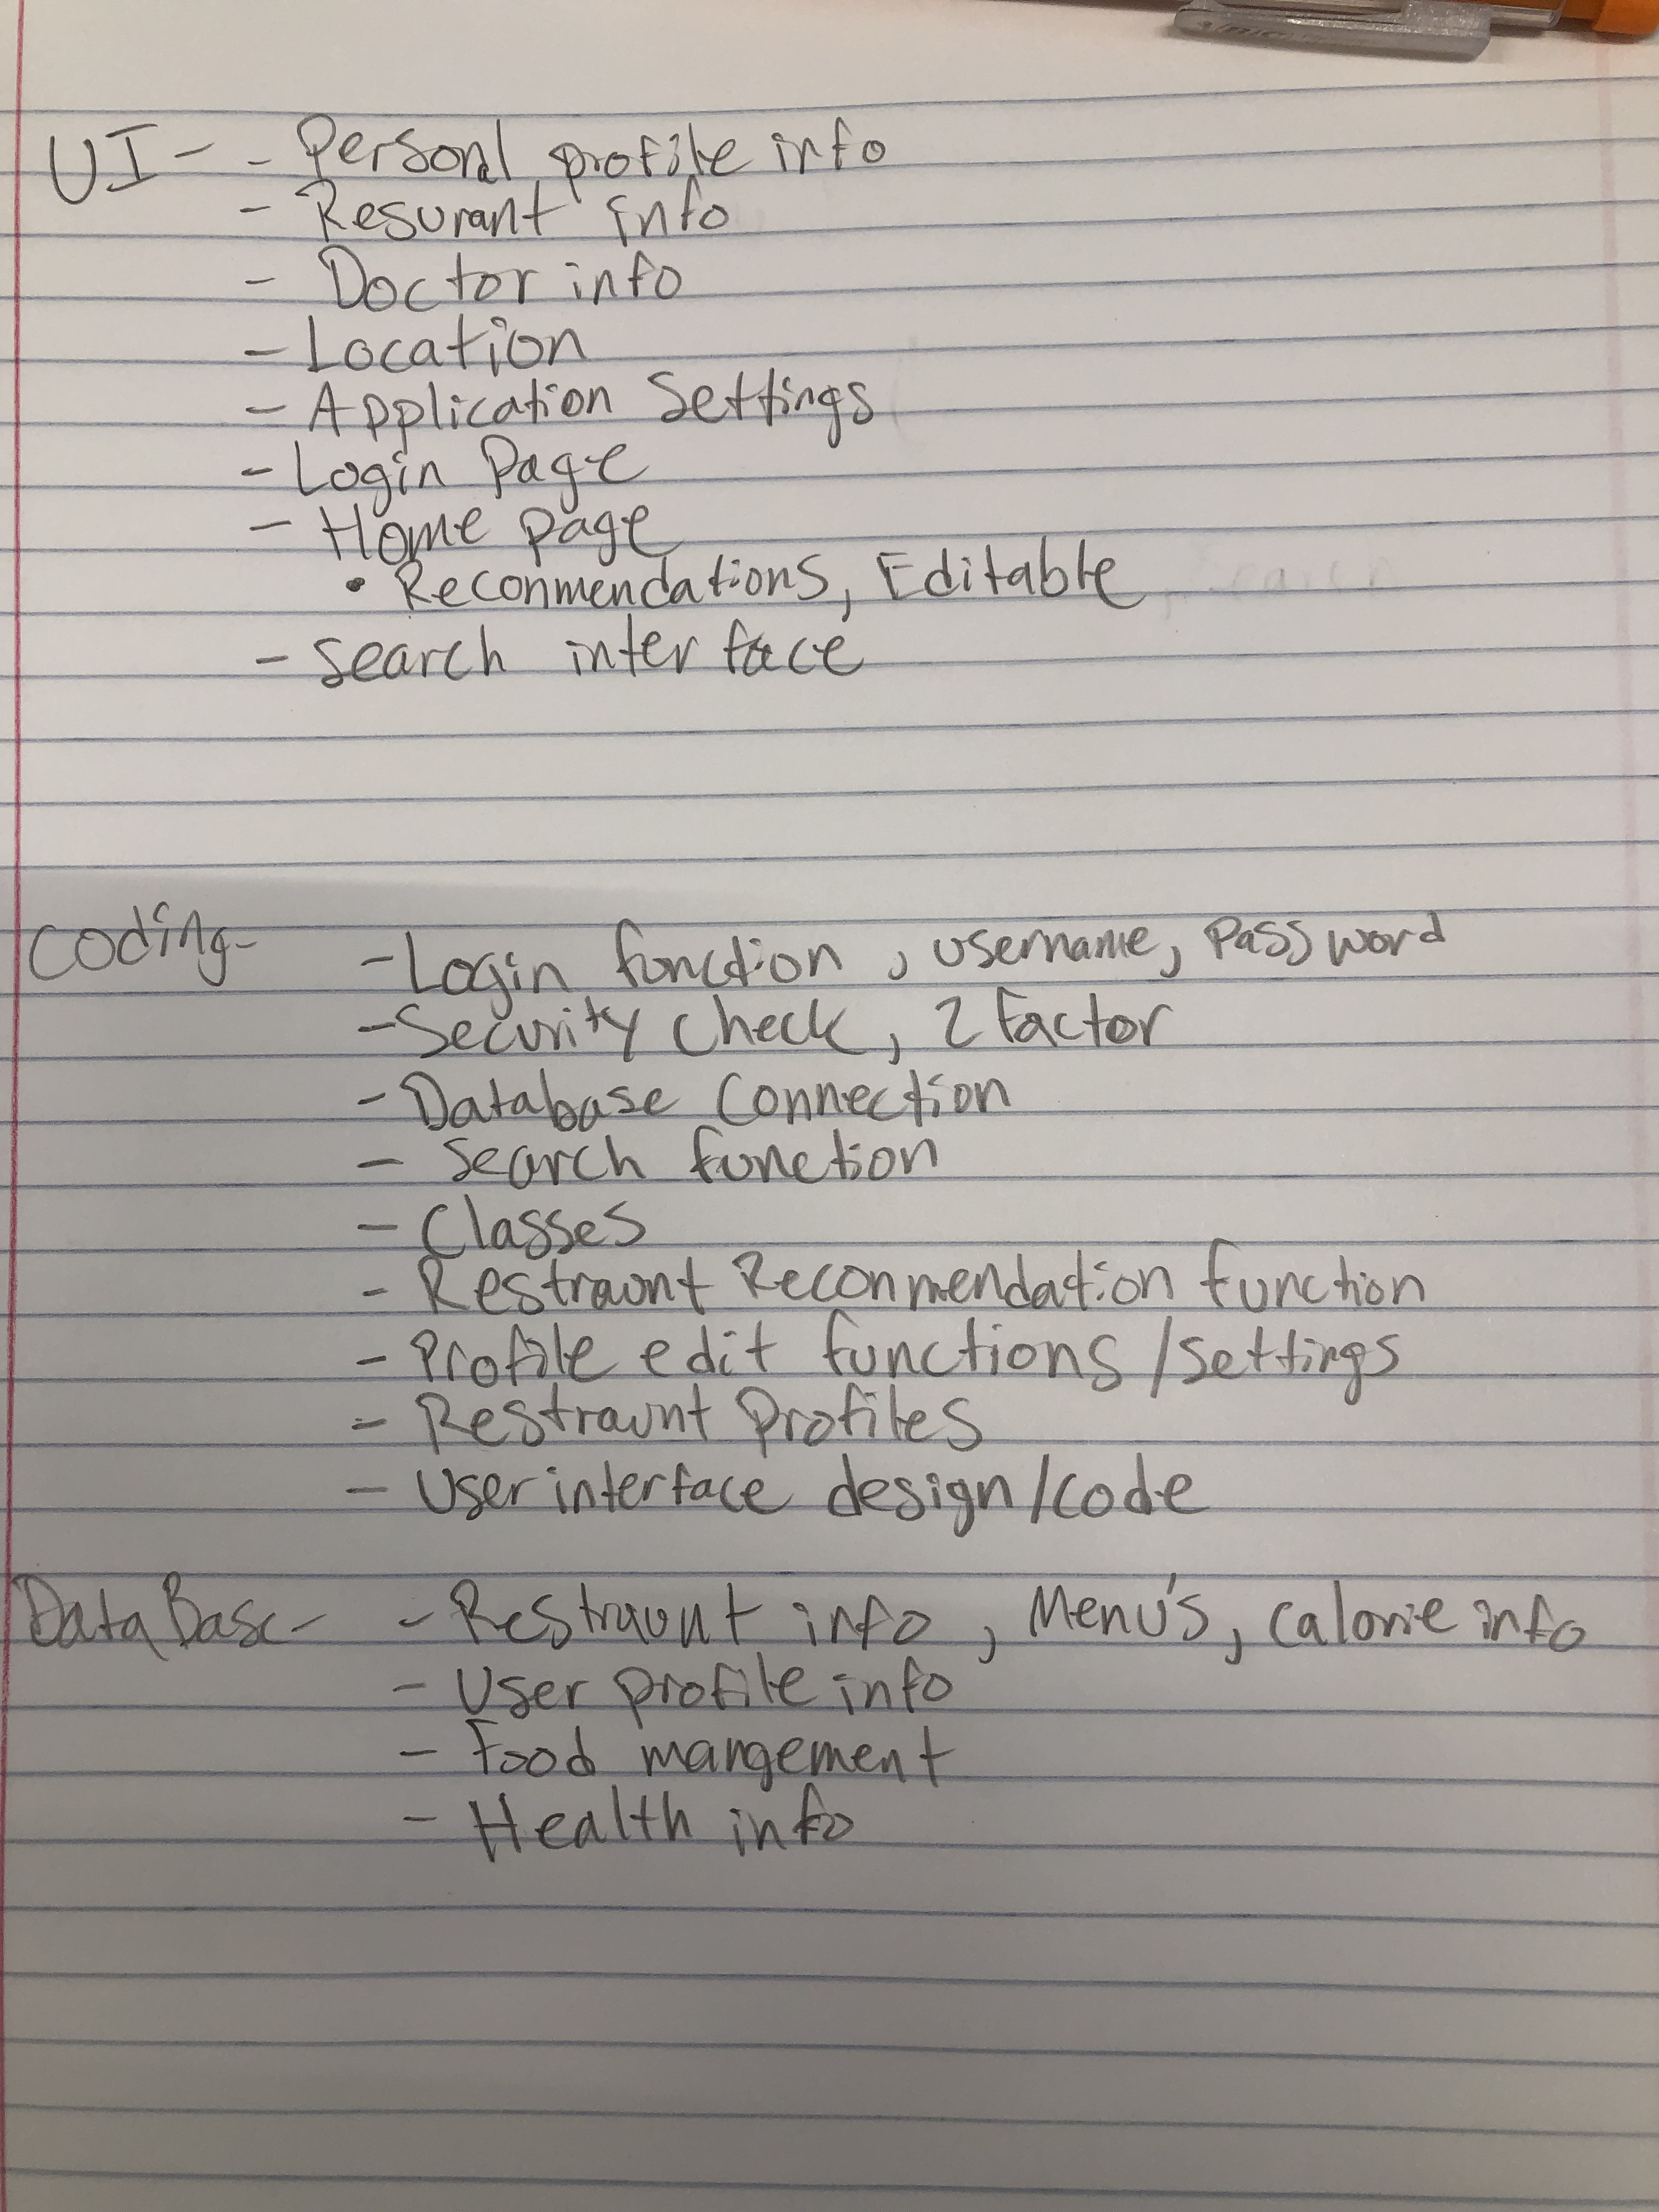 UI - - Personal profile info
- Resurant info
- Doctor info
- Location
- Application Settings
- Login Page
- Home page
• Reconmendations, Editable
- search interface
Coding- - Login function, username, Password
- Security Check, 2 Factor
- Database Connection
- Search function
- Classes
- Restraunt Reconmendation function
- Profile edit functions/settings
- Restraunt Profiles
- User interface design/code
DataBase- - Restraunt info, Menu's, calorie info
- User profile info
- Food mangement
- Health info